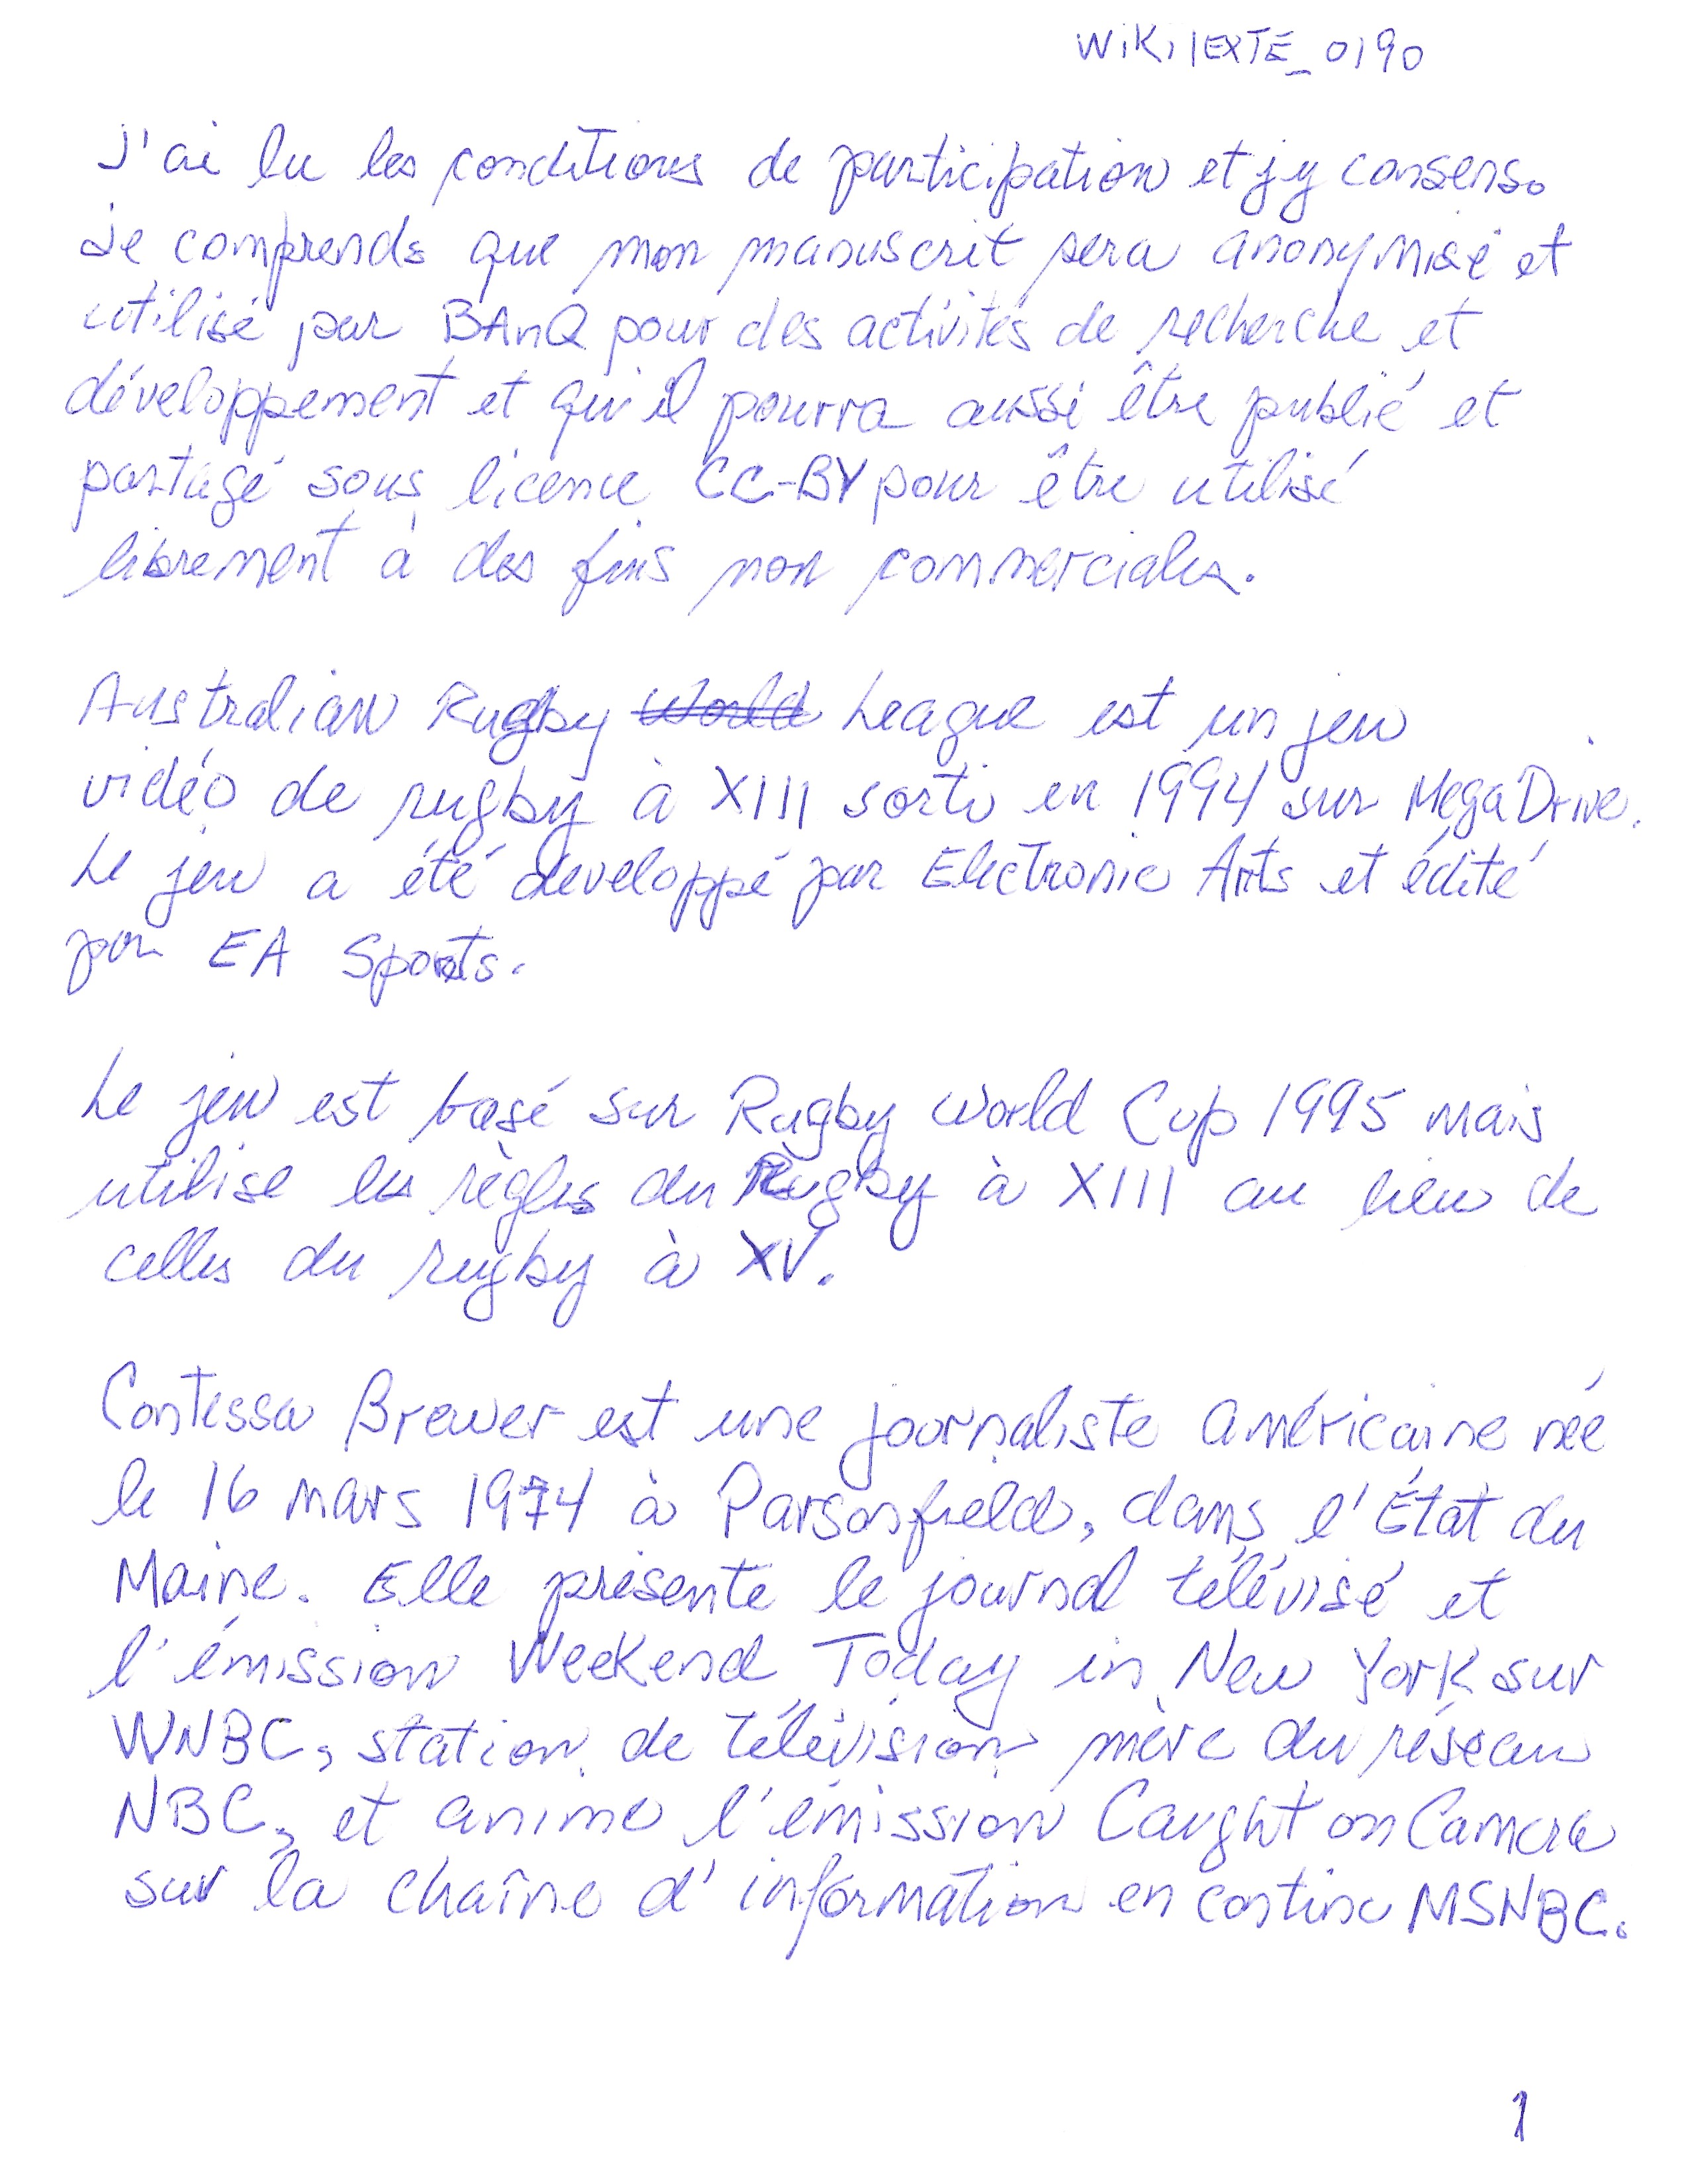 WiKiTEXTE_0190
J'ai lu les conditions de participation et j'y consens.
Je comprends que mon manuscrit sera anonymisé et
utilisé par BAnQ pour des activités de recherche et
développement et qu'il pourra aussi être publié et
partagé sous licence CC-BY pour être utilisé
librement à des fins non commerciales.
Australian Rugby World League est un jeu
vidéo de rugby à XIII sorti en 1994 sur Mega Drive.
Le jeu a été développé par Electronic Arts et édité
par EA Sports.
Le jeu est basé sur Rugby World Cup 1995 mais
utilise les règles du Rugby à XIII au lieu de
celles du rugby à XV.
Contessa Brewer est une journaliste américaine née
le 16 mars 1974 à Parsonsfield, dans l'État du
Maine. Elle présente le journal télévisé et
l'émission Weekend Today in New York sur
WNBC, station de télévision mère du réseau
NBC, et anime l'émission Caught on Camera
sur la chaîne d'information en continu MSNBC.
1